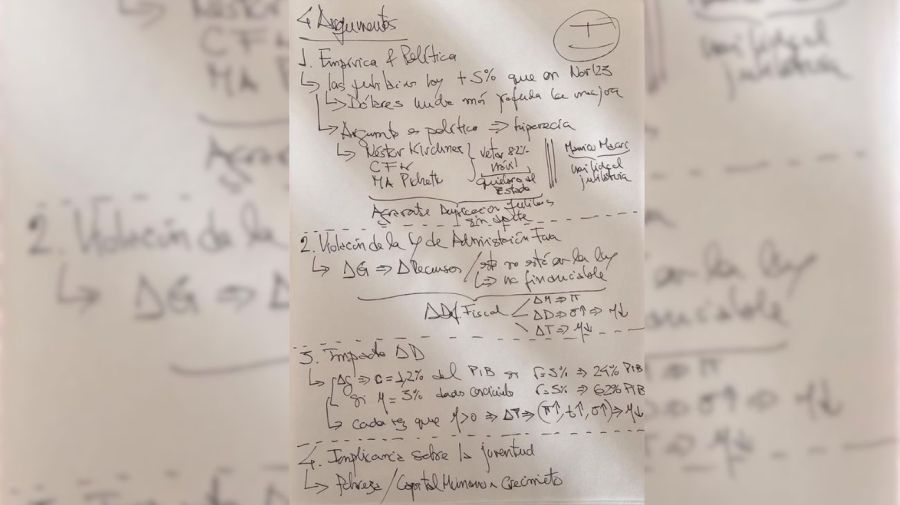 4 Argumentos
1. Empírica & Política
↳ las jubilacion hoy +5% que en Nov/23
↳ Dólares mucho más profunda la mejora
↳ Argumento es político ⇒ hipocresía
↳ Néstor Kirchner
CFK
MA Pichetto
vetar 82%
móvil
quiebra del
Estado
Mauricio Macri
movilidad
jubilatoria
Agravante Duplicacion Jubilados
sin aporte
2. Violación de la Ley de Administración Fin
↳ ΔG ⇒ ΔRecursos / no está en la ley
↳ no financiable
ΔDef Fiscal
ΔM ⇒ π
ΔD ⇒ σ↑ ⇒ Y↓
ΔT ⇒ Y↓
3. Impacto ΔD
↳ Δg ⇒ c = 1,2% del PIB si r=5% ⇒ 24% PIB
si η = 3% dado r=5% ⇒ 62% PIB
↳ cada vez que η>0 ⇒ ⇒ (π↑, t↑, σ↑) ⇒ Y↓
4. Implicancia sobre la juventud
↳ Pobreza / Capital Humano Crecimiento